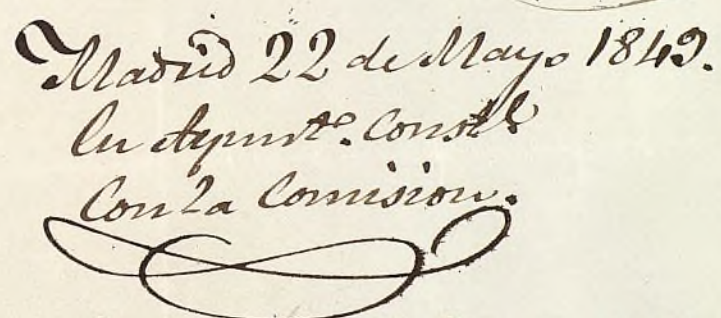 Madrid 22 de Mayo 1849.
En Ayuntº. Constl
Con la Comision.